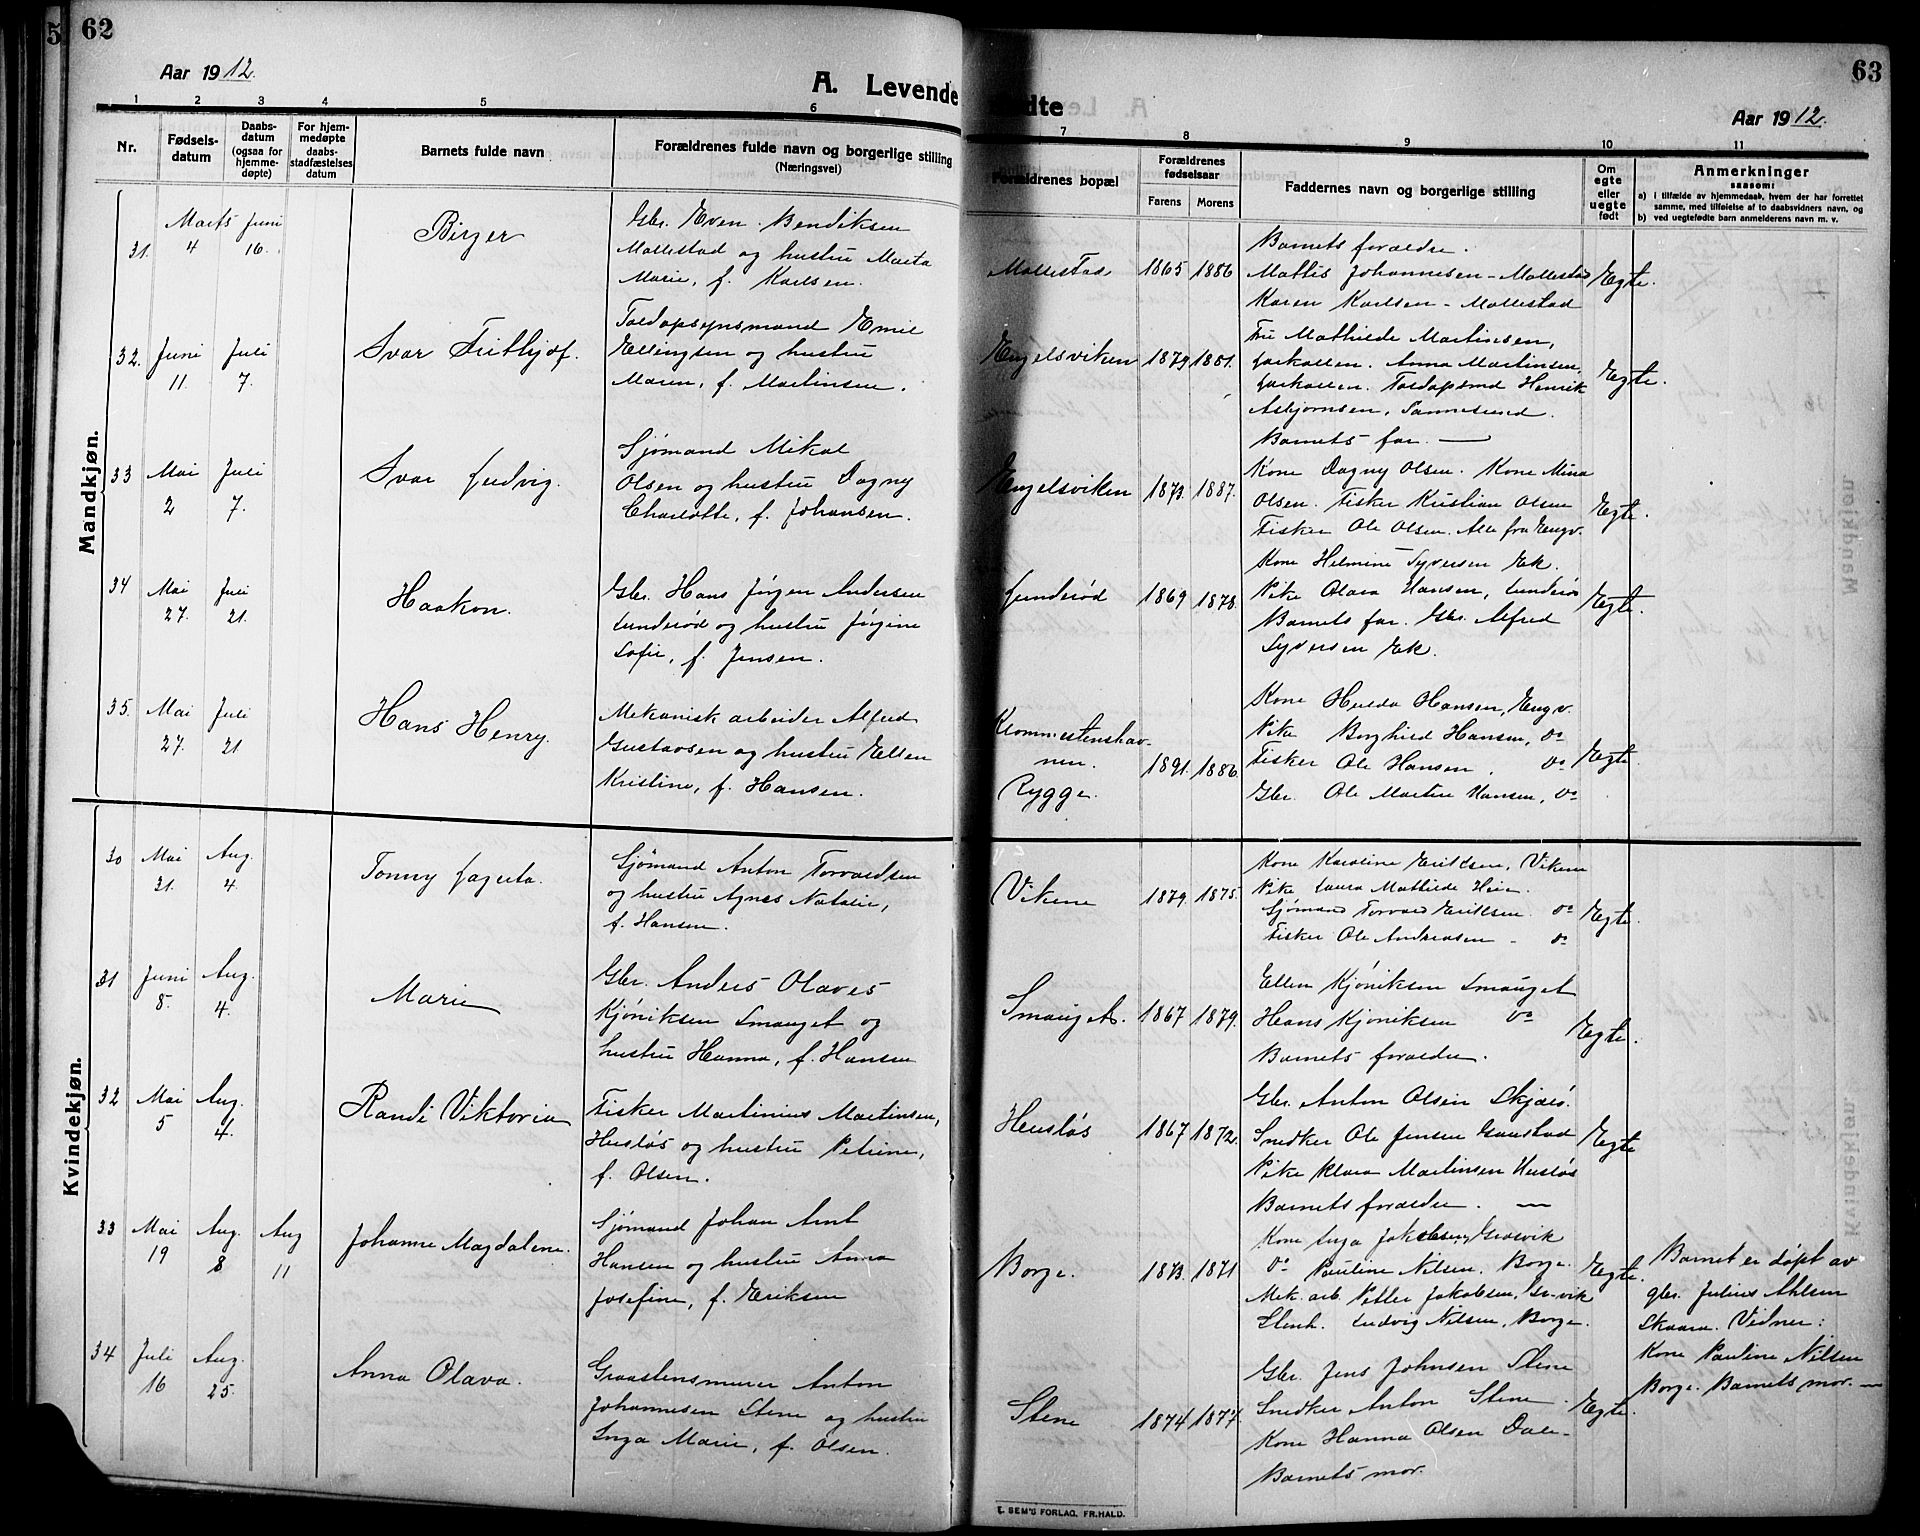 62
Aar 1912.
A. Levende
1 2 3 4 5 6
Nr.
Fødsels-
datum
Daabs-
datum
(ogsaa for
hjemme-
døpte)
For hjem-
medøpte
daabs-
stadfæstelses
datum
Barnets fulde navn
Forældrenes fulde navn og borgerlige stilling
(Næringsvei)
Mandkjøn.
31. Marts 4 Juni 16.
Birger
Gbr. Even Bendiksen
Mollestad og hustru Marta
Marie, f. Karlsen.
32. Juni 11. Juli 7.
Ivar Fritthjof.
Toldopsynsmand Emil
Ellingsen og hustru
Maren, f. Martinsen.
33 Mai 2 Juli 7.
Ivar Ludvig.
Sjømand Mikal
Olsen og hustru Dagny
Charlotte, f. Johansen.
34 Mai 27. Juli 21.
Haakon.
Gbr. Hans Jørgen Andersen
Lunderød og hustru Jørgine
Sofie, f. Jensen.
35. Mai 27. Juli 21
Hans Henry.
Mekanisk arbeider Alfred
Gustavsen og hustru Ellen
Kristine, f. Hansen.
Kvindekjøn.
30 Mai 21. Aug. 4.
Tonny Lagerta.
Sjømand Anton Torvaldsen
og hustru Agnes Natalie,
f. Hansen.
31 Juni 8. Aug. 4.
Marie
Gbr. Anders Olaves
Kjøniksen Smauget og
hustru Hanna, f. Hansen
32 Mai 5 Aug. 4.
Randi Viktoria
Fisker Martinius Martinsen,
Husløs og hustru Petrine,
f. Olsen.
33 Mai 19 Aug. 8 Aug 11
Johanne Magdalene.
Sjømand Johan Arnt
Hansen og hustru Anna
Josefine, f. Eriksen
34 Juli 16 Aug. 25.
Anna Olava.
Graastensmurer Anton
Johannesen Stene og hustru
Inga Marie, f. Olsen.
63
Aar 1912.
fødte
7 8 9 10 11
Forældrenes bopæl
Forældrenes
fødselsaar
Farens Morens
Faddernes navn og borgerlige stilling
Om
egte
eller
uegte
født
Anmerkninger
saasom:
a) i tilfælde av hjemmedaab, hvem der har forrettet
samme, med tilføielse af to daabsvidners navn, og
b) ved uegtefødte barn anmelderens navn m. v.
Mollestad 1865 1886 Egte.
Barnets forældre.
Mattis Johannesen - Mollestad
Karen Karlsen - Mollestad
Engelsviken 1879 1881. Egte.
Fru Mathilde Martinsen,
Larkollen. Anna Martinsen,
Larkollen. Toldopsmd Henrik
Asbjørnsen, Sannesund.
Barnets far. —
Engelsviken 1873. 1887. Egte.
Kone Dagny Olsen. Kone Mina
Olsen. Fisker Kristian Olsen
Fisker Ole Olsen. Alle fra Engv.
Lunderød 1869 1878. Egte.
Kone Helmine Syversen Ek.
Pike Olava Hansen, Lunderød
Barnets far. Gbr. Alfred
Syversen Ek.
Krommestenshav-
nen.
Rygge. 1891. 1886. Egte.
Kone Hulda Hansen, Engv.
Pike Borghild Hansen, do
Fisker Ole Hansen. do
Gbr. Ole Martin Hansen, do
Vikene 1879. 1875. Egte.
Kone Karoline Eriksen, Vikene
Pike Laura Mathilde Heie.
Sjømand Torvald Eriksen. do
Fisker Ole Andreasen - do
Smauget. 1867 1879. Egte.
Ellen Kjøniksen Smauget
Hans Kjøniksen do
Barnets forældre.
Hensløs 1867 1872. Egte
Gbr. Anton Olsen Skjærs.
Snedker Ole Jensen Gaustad
Pike Klara Martinsen Husløs
Barnets forældre. —
Borge. 1873. 1871 Egte.
Kone Inga Jakobsen, Gresvik
do Pauline Nilsen. Borge.
Mek. arb. Petter Jakobsen, Gr.vik
Stenh. Ludvig Nilsen, Borge.
Barnet er døpt av
gbr. Julius Ahlsen
Skaara. Vidner:
Kone Pauline Nilsen
Borge. Barnets mor. —
Stene 1874 1877. Egte.
Gbr. Jens Johnsen Stene
Snedker Anton Stene.
Kone Hanna Olsen Dale-
Barnets mor.
E. SEM'S FORLAG, FR.HALD.